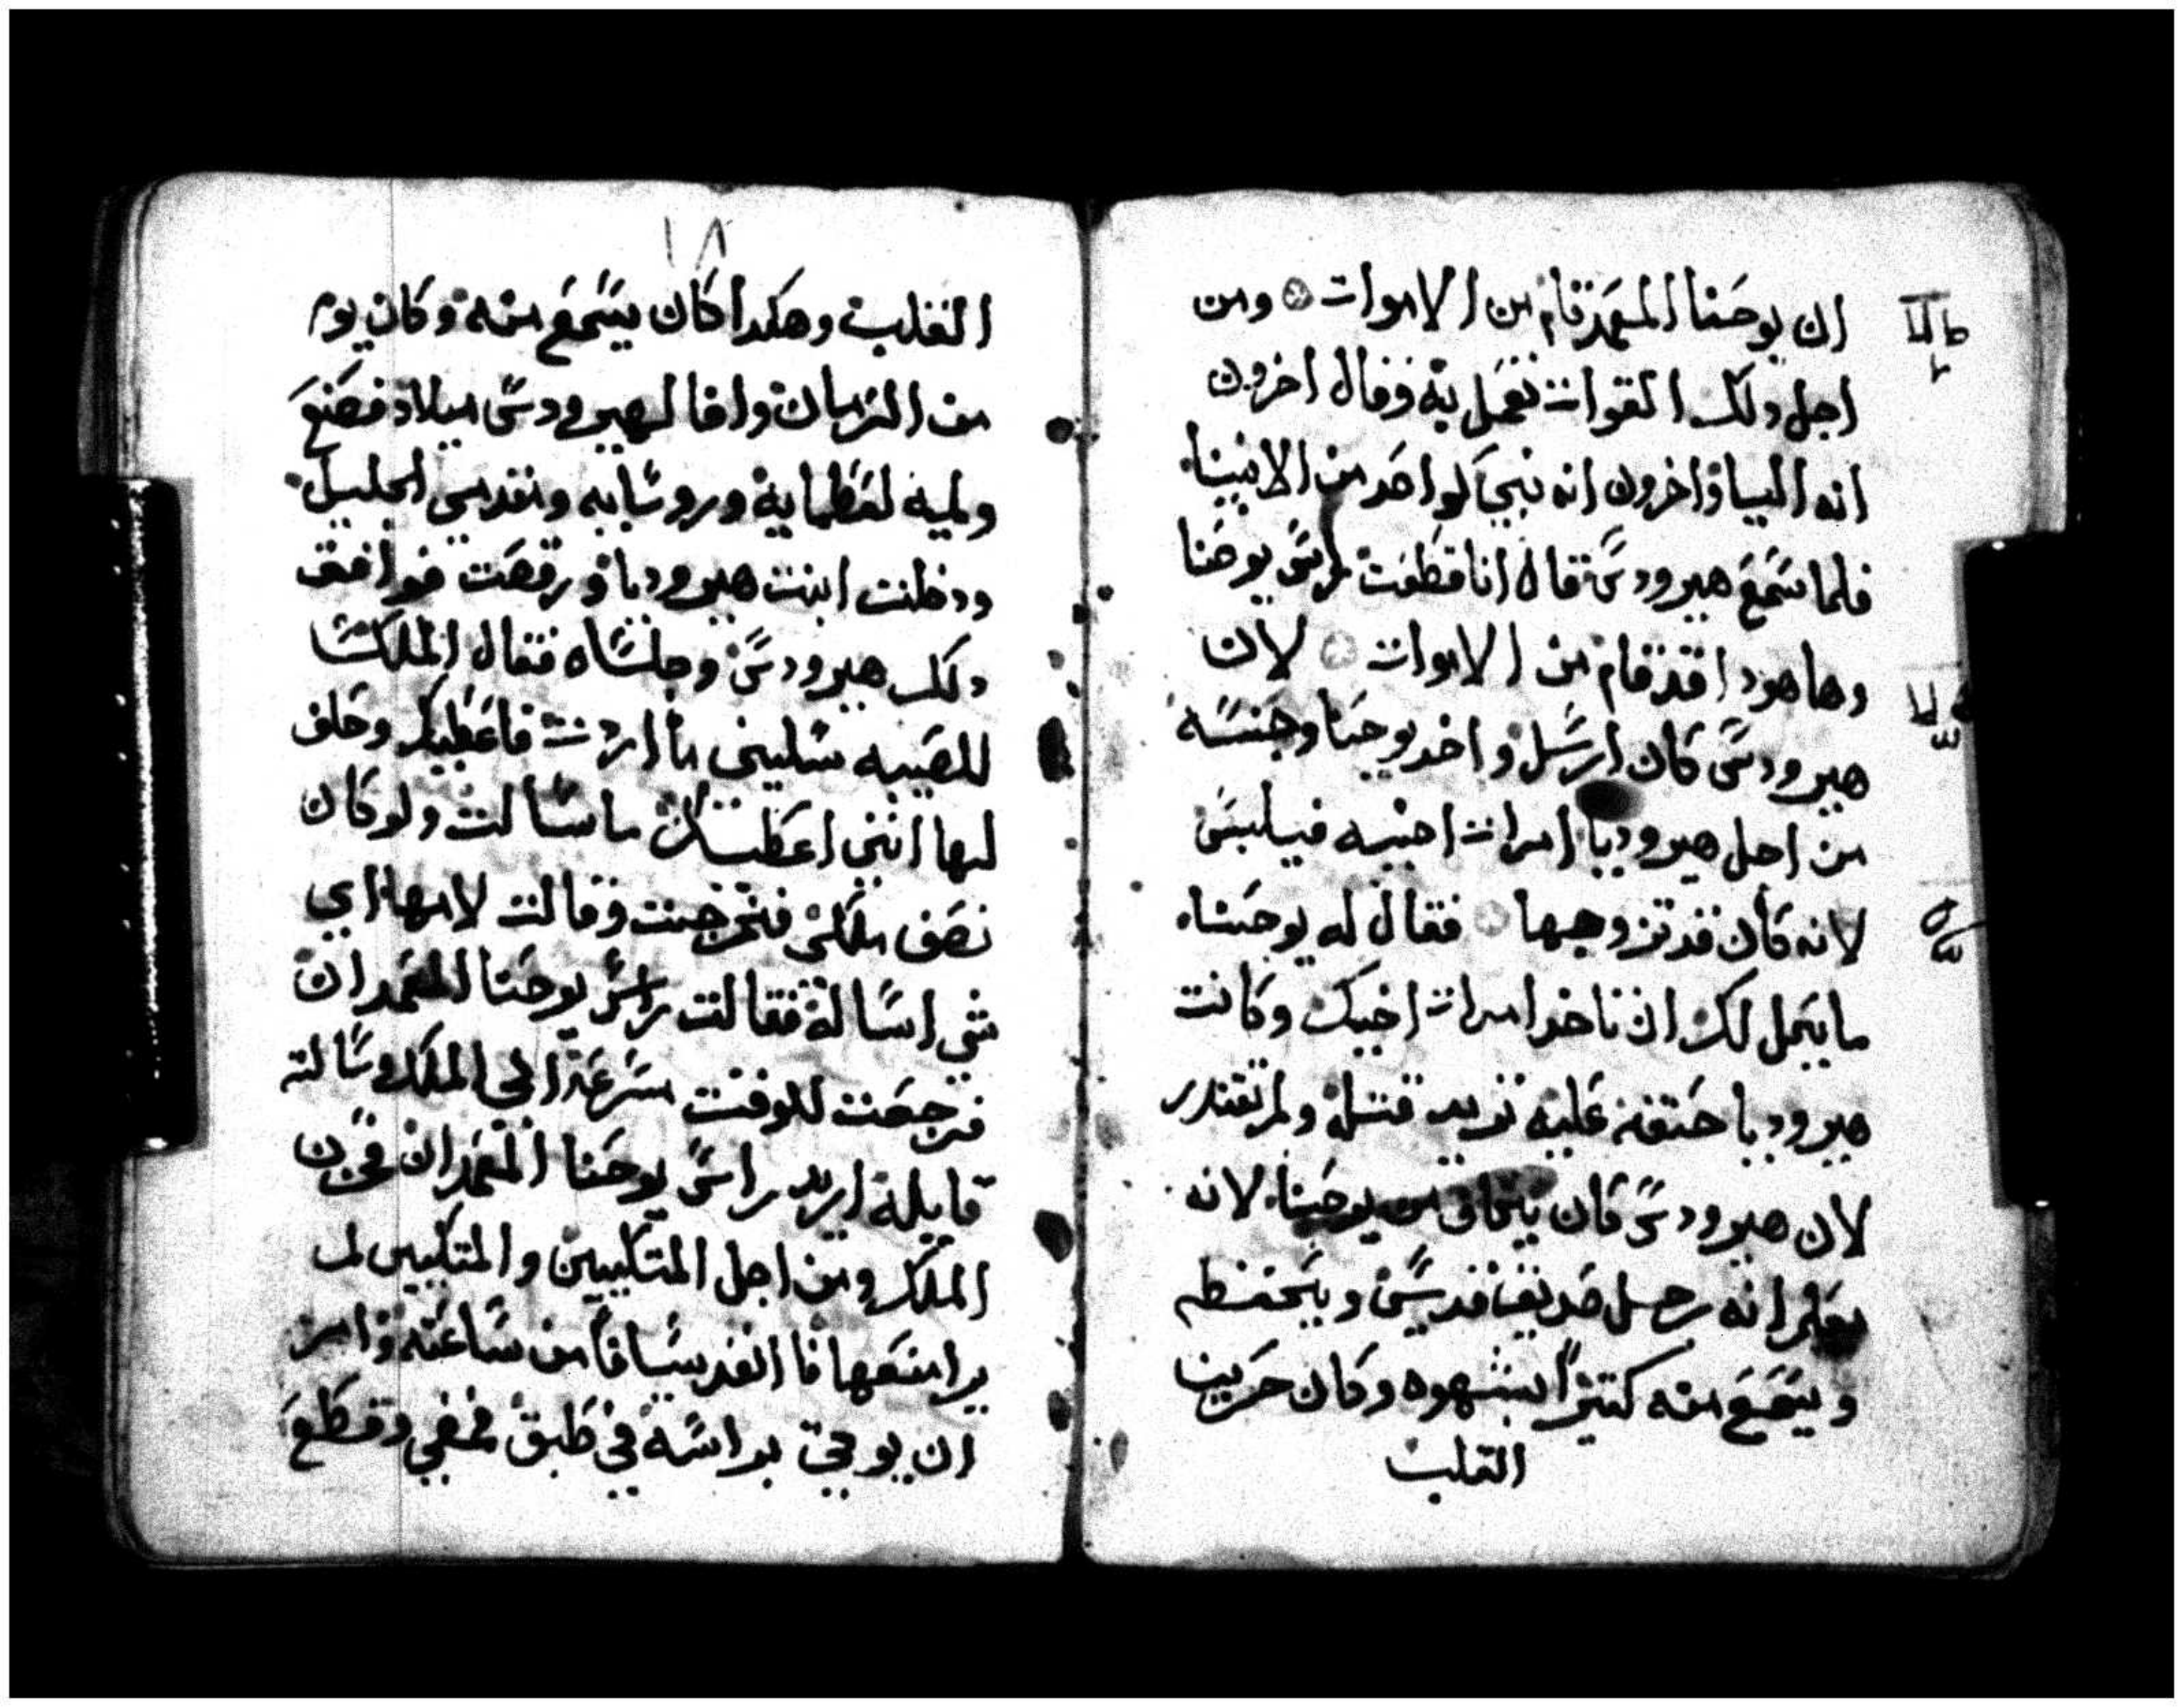 ان يوحنا المعمد قام من الاموات ومن
اجل دلك القوات تعمل به وقال اخرون
انه اليا واخرون انه نبي كواحد من الانبياء
فلما سمع هيرودس قال انا قطعت راس يوحنا
وها هودا قد قام من الاموات لان
هيرودس كان ارسل واخد يوحنا وحبسه
من اجل هيروديا امرات اخيه فيلبس
لانه كان قد تزوجها فقال له يوحنا
ما يحل لك ان تاخد امرات اخيك وكانت
هيروديا حنقه عليه تريد قتله ولم تقتدر
لان هيرودس كان يخاف من يوحنا لانه
يعلم انه رجل صديق قديس ويحفظه
ويسمع منه كتيرا بشهوه وكان حزين
القلب
١٨
القلب وهكدا كان يسمع منه وكان يوم
من الزمان وافا لهيرودس ميلاد فصنع
وليمه لعظمايه وروسايه ومقدمي الجليل
ودخلت ابنت هيروديا ورقصت فوافق
دلك هيرودس وجلساه فقال الملك
للصبيه سليني ما اردت فاعطيك وحلف
لها انني اعطيك ما سالت ولو كان
نصف ملكي فخرجت وقالت لامها اي
شي اساله فقالت راس يوحنا المعمدان
فرجعت للوقت مسرعه الى الملك وسالته
قايله اريد راس يوحنا المعمدان فحزن
الملك ومن اجل المتكيين والمتكيين لم
يرا منعها فانفد سيافا من ساعته وامر
ان يوتى براسه في طبق فمضى وقطع